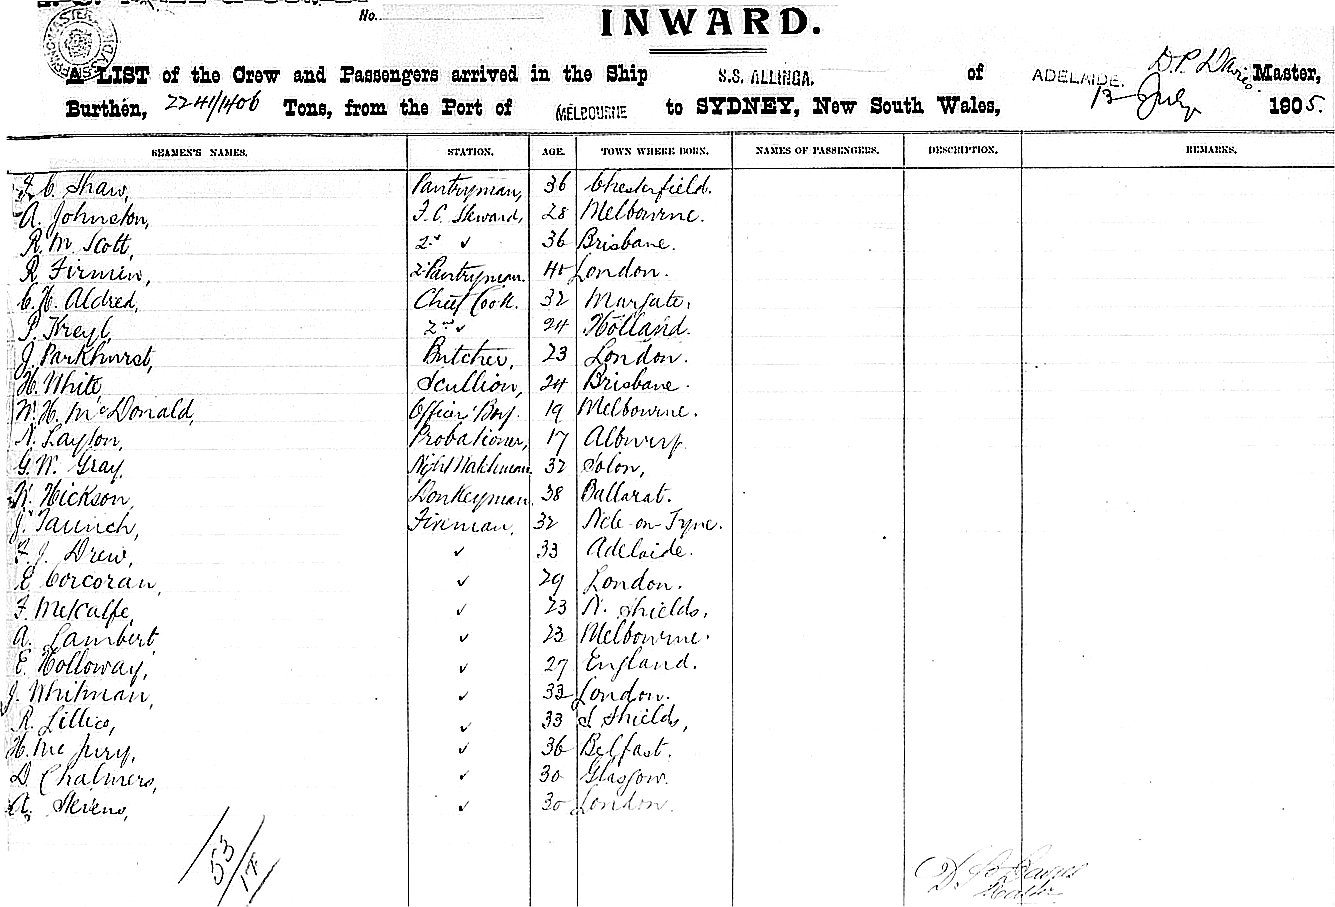 No.
INWARD.
A LIST of the Crew and Passengers arrived in the Ship S.S. ALLINGA. of ADELAIDE. D.P. Davies. Master,
Burthen, 2241/1406 Tons, from the Port of MELBOURNE to SYDNEY, New South Wales, 13 July 1905.
SEAMEN'S NAMES. STATION. AGE. TOWN WHERE BORN. NAMES OF PASSENGERS. DESCRIPTION. REMARKS.
F. C. Shaw, Pantryman, 36 Chesterfield.
A. Johnston, F.C. Steward, 28 Melbourne.
R. M. Scott, 2nd ✓ 36 Brisbane.
R. Firmin, 2nd Pantryman. 40 London.
C. H. Aldred, Chief Cook. 32 Margate.
P. Kreyl, 2nd ✓ 24 Holland.
J. Parkhurst, Butcher, 23 London.
H. White, Scullion, 24 Brisbane.
W. H. McDonald, Officers' Boy. 19 Melbourne.
N. Layton, Probationer, 17 Albury.
G. W. Gray. Night Watchman. 32 Solon,
W. Hickson, Donkeyman. 38 Ballarat.
J. Taunch, Fireman, 32 Ncle-on-Tyne.
F. J. Drew, ✓ 33 Adelaide.
E. Corcoran, ✓ 29 London.
F. Metcalfe, ✓ 23 N. Shields.
A. Lambert, ✓ 23 Melbourne.
E. Holloway, ✓ 27 England.
J. Whitman, ✓ 33 London.
R. Lillico, ✓ 33 S. Shields,
H. McJury, ✓ 36 Belfast.
D. Chalmers, ✓ 30 Glasgow.
A. Stevens, ✓ 30 London.
53/17
D. P. Davies
Master